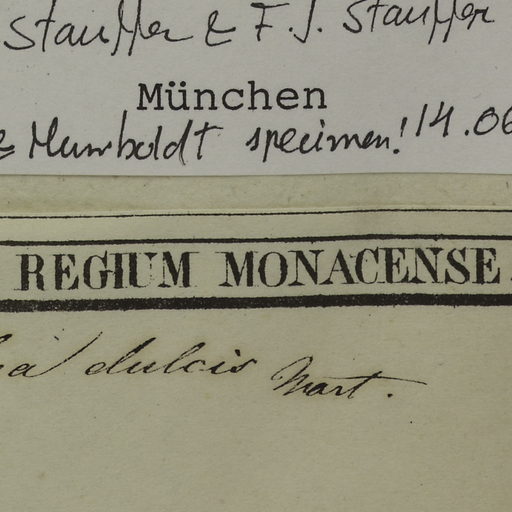 Stauffer & F.J. Stauffer
München
Humboldt specimen! 14.06
REGIUM MONACENSE
dulcis Mart.